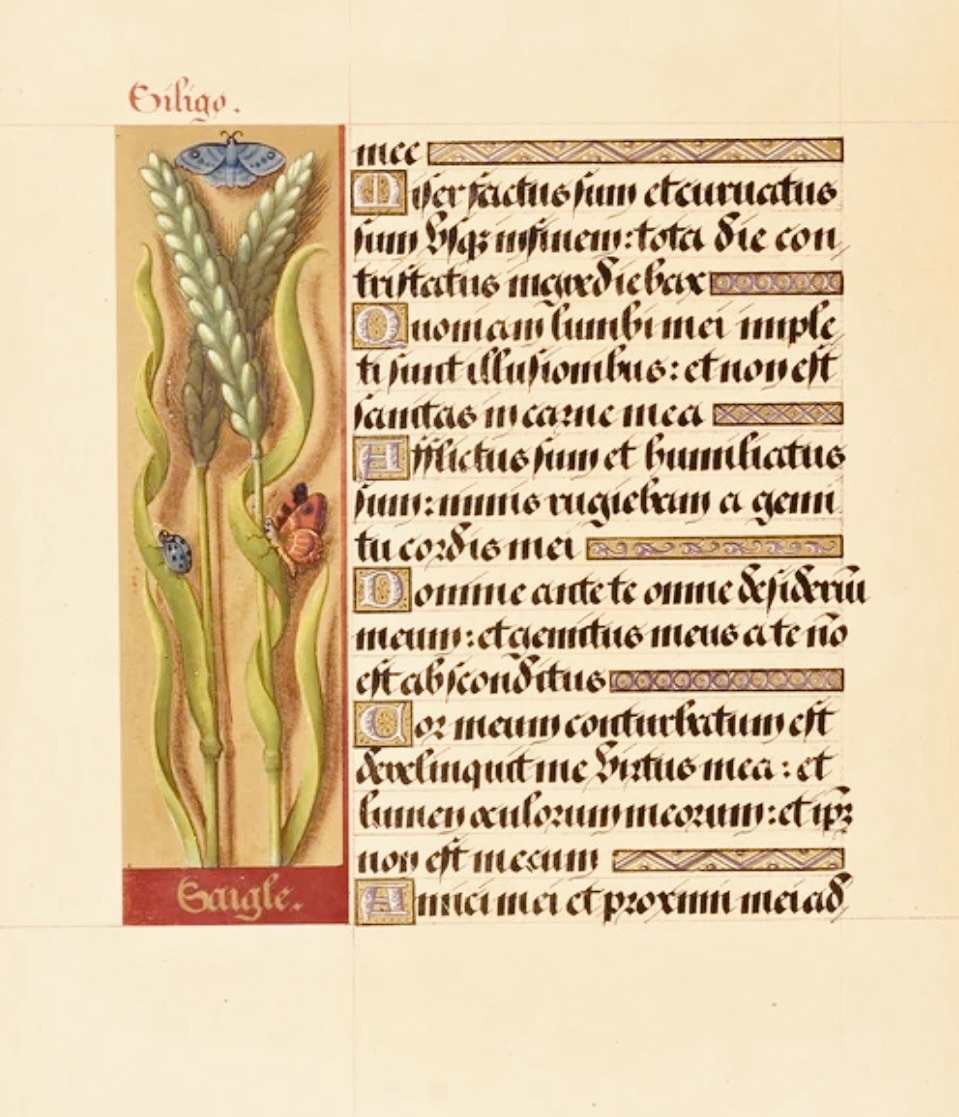 Siligo.
mee
Miser factus sum et curuatus
sum vsq; in finem: tota die con
tristatus ingrediebar
Quoniam lumbi mei imple
ti sunt illusionibus: et non est
sanitas in carne mea
Afflictus sum et humiliatus
sum: nimis rugiebam a gemi
tu cordis mei
Domine ante te omne desideriū
meum: et gemitus meus a te nō
est absconditus
Cor meum conturbatum est
dereliquit me virtus mea: et
lumen oculorum meorum: et ipz
non est mecum
Amici mei et proximi mei ad
Saigle.